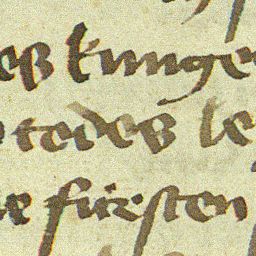 es kunge
todes le
e fürsten